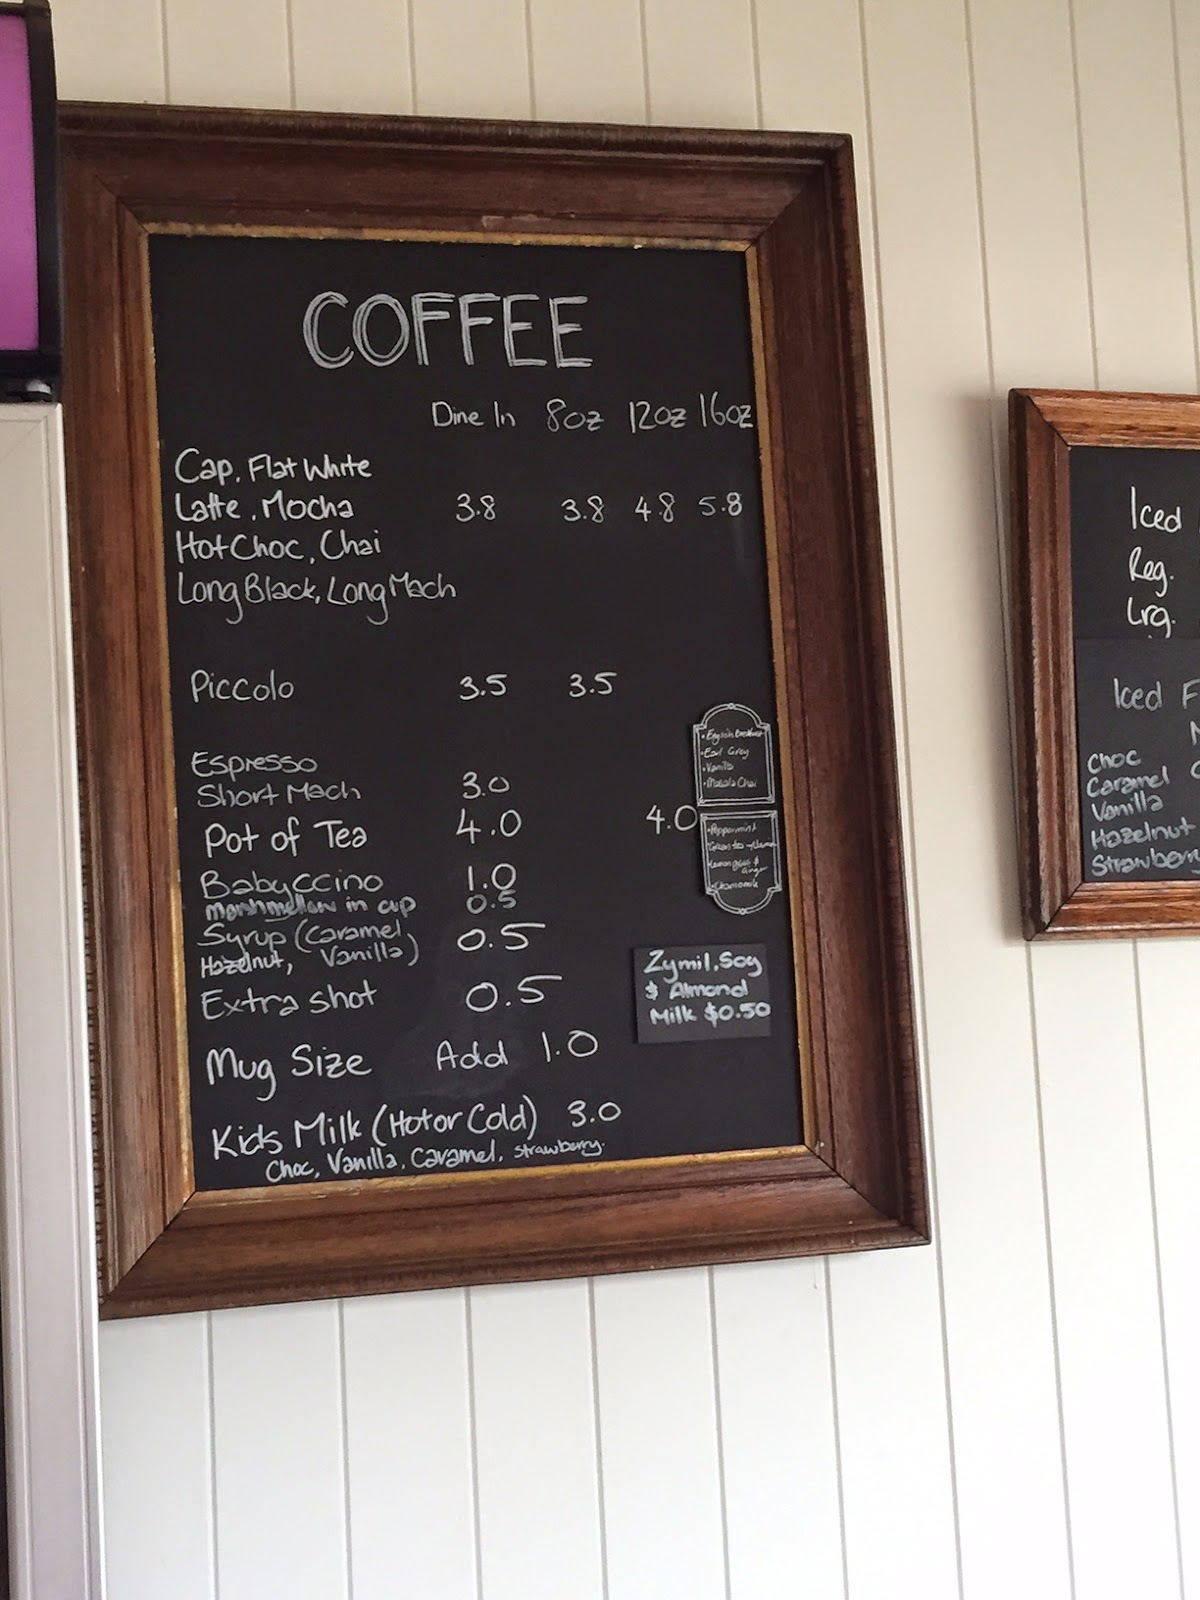 COFFEE
Dine In 8oz 12oz 16oz
Cap, Flat White
Latte, Mocha 3.8 3.8 4.8 5.8
Hot Choc, Chai
Long Black, Long Mach
Piccolo 3.5 3.5
Espresso
Short Mach 3.0
Pot of Tea 4.0 4.0
Babyccino 1.0
marshmellow in cup 0.5
Syrup (Caramel, 0.5
Hazelnut, Vanilla)
Extra shot 0.5
Mug Size Add 1.0
Kids Milk (Hot or Cold) 3.0
Choc, Vanilla, Caramel, Strawberry.
• English Breakfast
• Earl Grey
• Vanilla
• Masala Chai
• Peppermint
Lemongrass &
Ginger
• Chamomile
Zymil, Soy
& Almond
Milk $0.50
Iced
Reg.
Lrg.
Iced F
Choc
Caramel
Vanilla
Hazelnut
Strawberry